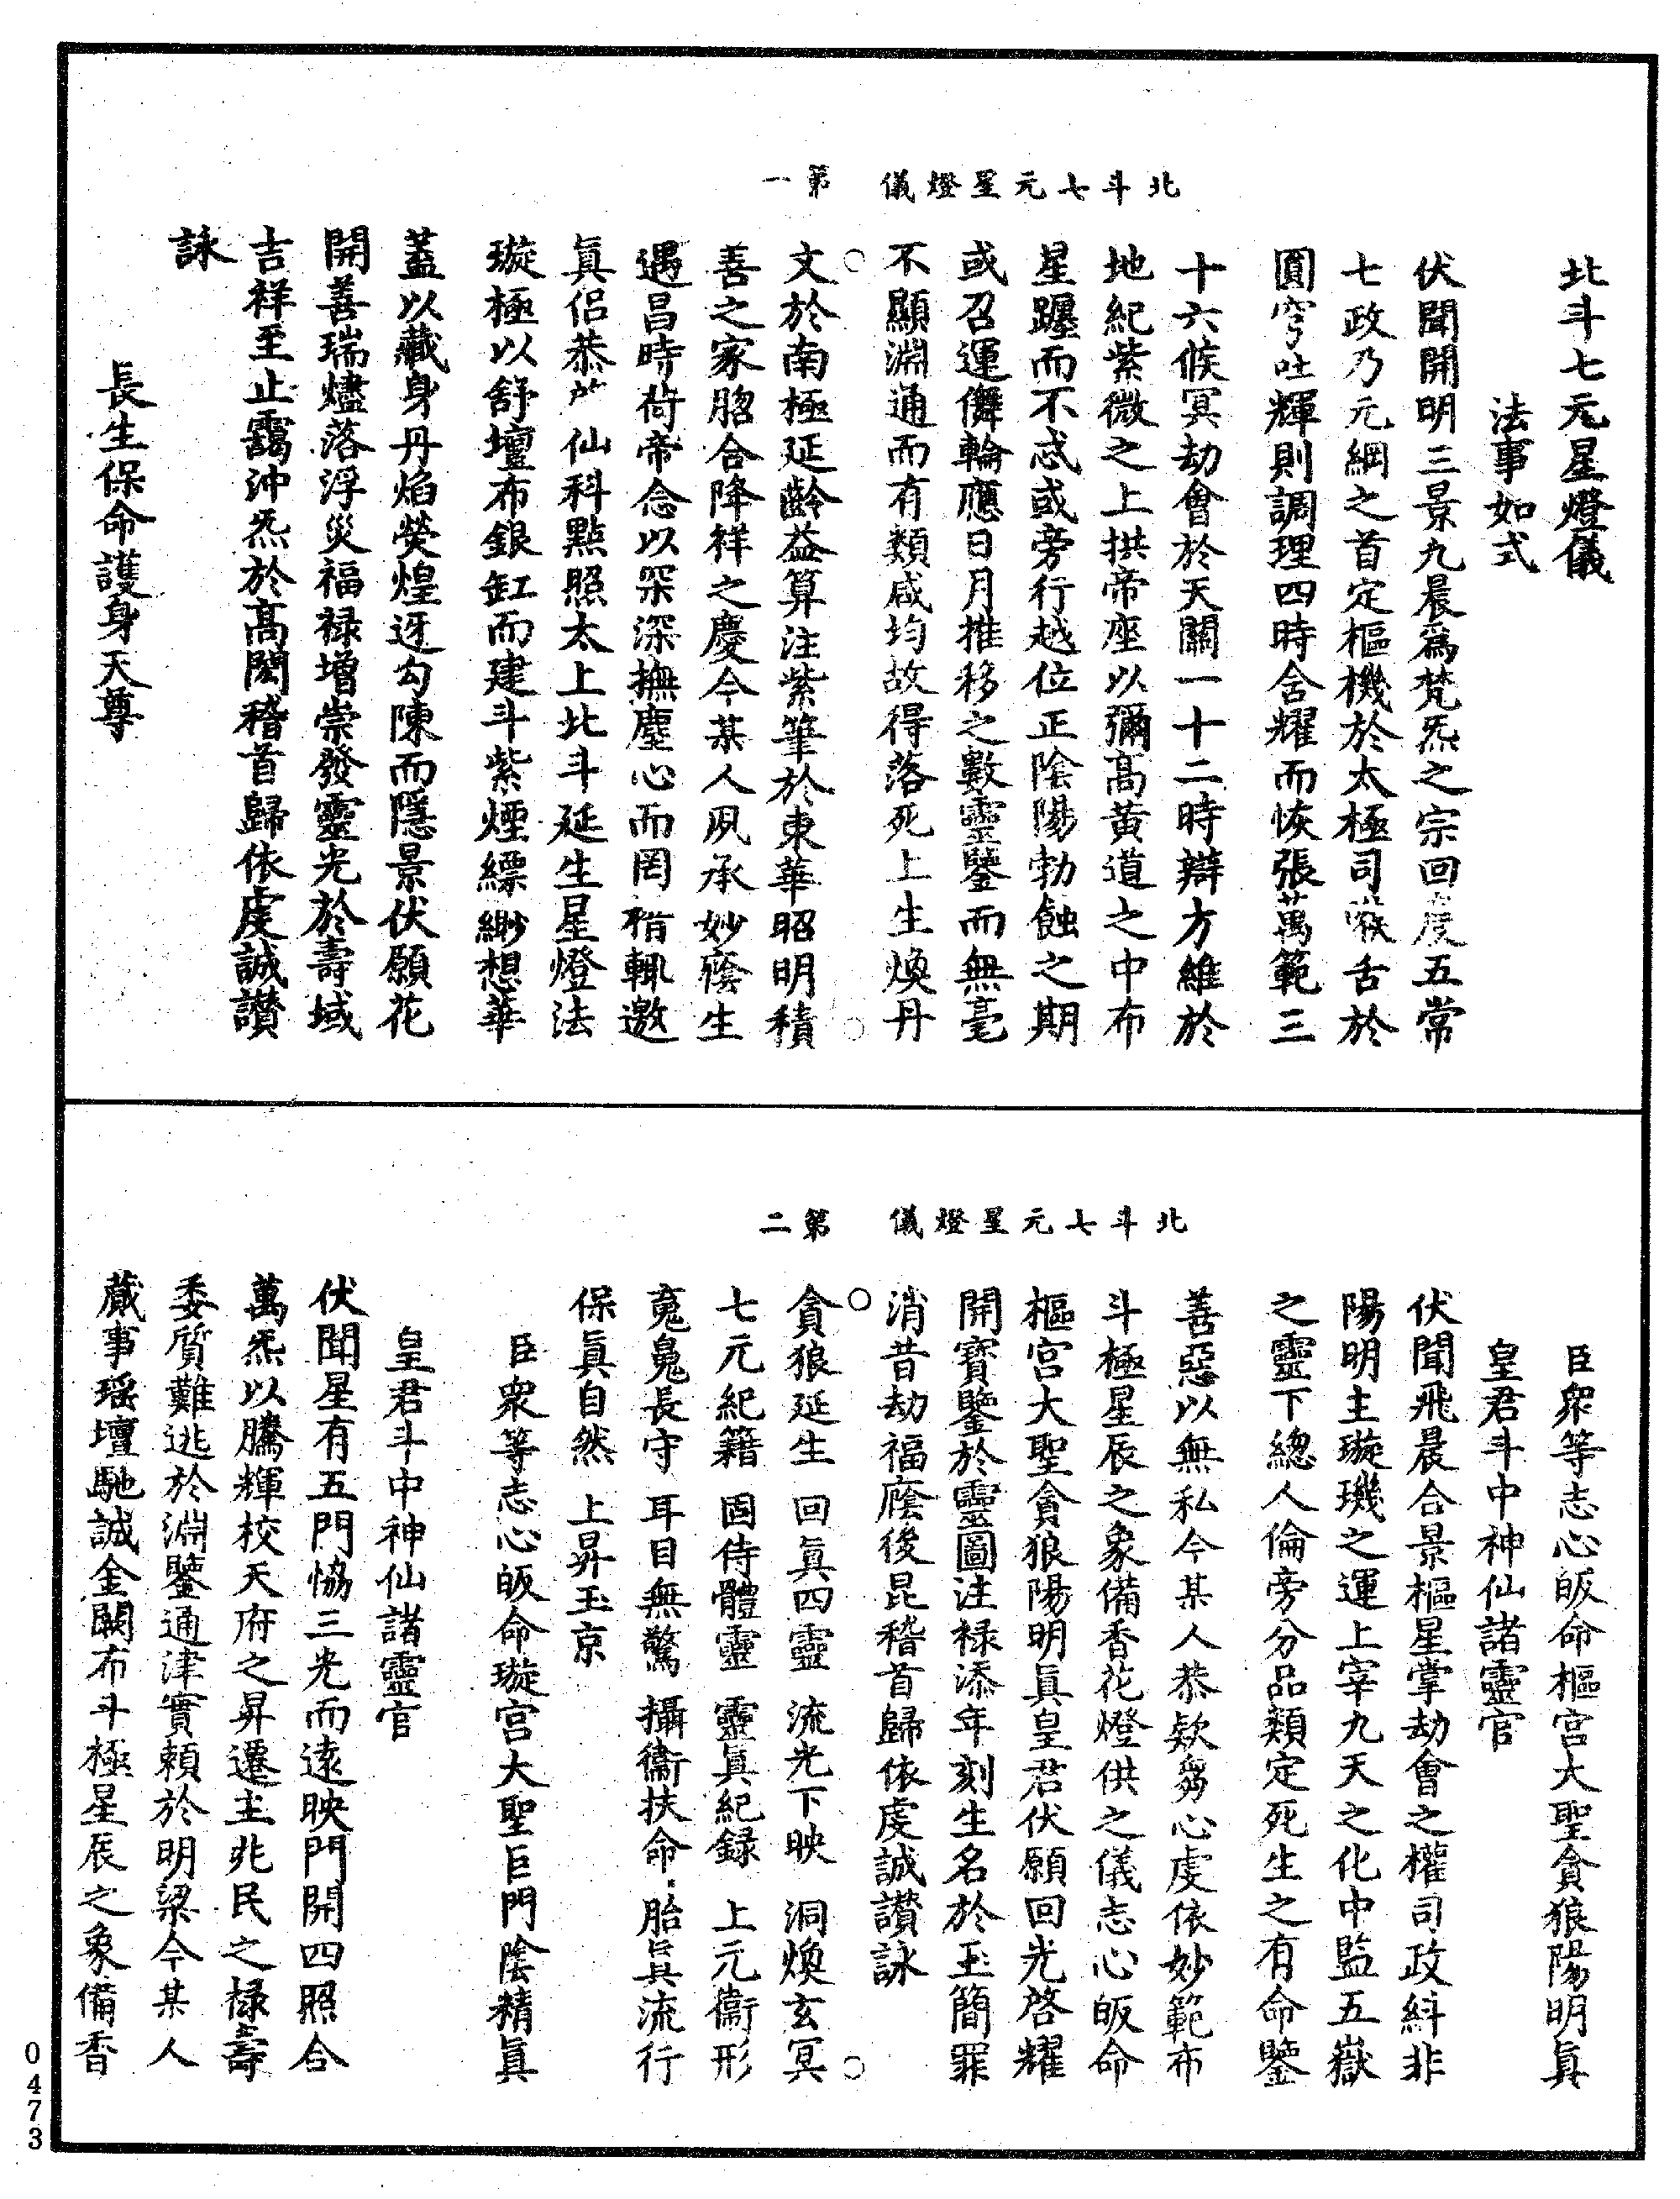 北斗七元星燈儀
法事如式
伏聞開明三景九晨為梵炁之宗回度五常
七政乃元綱之首定樞機於太極司喉舌於
圓穹吐輝則調理四時舍耀而恢張萬範三
十六候冥劫會於天關一十二時辯方維於
地紀紫微之上拱帝座以彌高黄道之中布
星躔而不忒或旁行越位正陰陽勃蝕之期
或召運儛輪應日月推移之數靈鑒而無毫
不顯淵通而有類咸均故得落死上生煥丹
北斗七元星燈儀 第一
文於南極延齡益算注紫筆於東華昭明積
善之家脗合降祥之慶今某人夙承妙廕生
遇昌時荷帝念以罙深撫塵心而罔措輒邀
眞侣恭 仙科點照太上北斗延生星燈法
璇極以舒壇布銀缸而建斗紫煙縹緲想華
蓋以藏身丹焰熒煌迓勾陳而隱景伏願花
開善瑞燼落浮災福禄增崇發靈光於壽域
吉祥至止靄沖炁於高閎稽首歸依虔誠讃
詠
長生保命護身天尊
臣衆等志心皈命樞宫大聖貪狼陽明眞
皇君斗中神仙諸靈官
伏聞飛晨合景樞星掌劫會之權司政糾非
陽明主璇璣之運上宰九天之化中監五嶽
之靈下總人倫旁分品類定死生之有命鑒
善惡以無私今某人恭欵芻心虔依妙範布
斗極星辰之象備香花燈供之儀志心皈命
樞宫大聖貪狼陽明眞皇君伏願回光啓耀
開寳鑒於靈圖注禄添年刻生名於玉簡罪
消昔劫福廕後昆稽首歸依虔誠讃詠
北斗七元星燈儀 第二
貪狼延生 回眞四靈 流光下映 洞煥玄冥
七元紀籍 固侍體靈 靈眞紀録 上元衞形
竟㝹長守 耳目無驚 攝衞扶命 胎眞流行
保眞自然 上昇玉京
臣衆等志心皈命璇宫大聖巨門陰精眞
皇君斗中神仙諸靈官
伏聞星有五門恊三光而遠映門開四照合
萬炁以騰輝校天府之昇遷主兆民之禄壽
委質難逃於淵鑒通津實賴於明梁今某人
蕆事瑶壇馳誠金闕布斗極星辰之象備香
0473